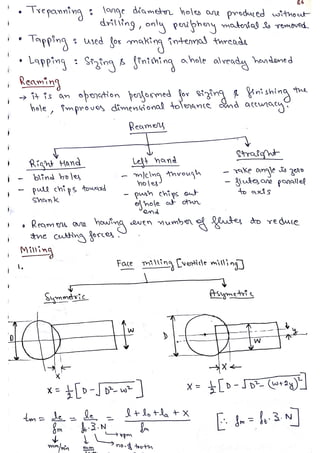 86
• Trepanning : large diameter holes are produced without
drilling, only periphery material is removed.
• Tapping : used for making internal threads
• Lapping : Sizing & finishing a hole already hardened
Reaming
→ it is an operation performed for sizing & finishing the
hole, improves dimensional tolerance and accuracy.
Reamers
Right Hand
- blind holes
- pull chips toward
shank
Left hand
- m/cing through
holes
- push chips out
of hole at other
end
Straight
- rake angle is zero
- flutes are parallel
to axis
• Reamers are having even number of flutes to reduce
the cutting forces.
Milling
1.
Face milling [verticle milling]
Symmetric
Asymetric
D
W
X
D
W
y
X
X = 1/2 [D - √D² - W²]
X = 1/2 [D - √D² - (W+2y)²]
tm = le/fm = le/ft·Z·N = l + lo + la + X / fm
[∵ fm = ft·Z·N]
mm/min
mm
rpm
no. of tooth